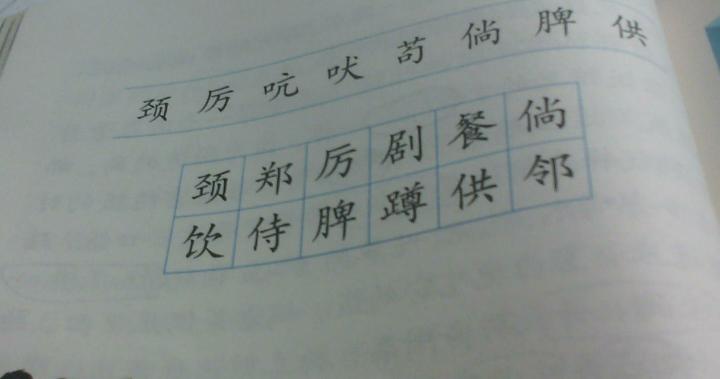 颈 厉 吭 吠 苟 倘 脾 供
颈 郑 厉 剧 餐 倘
饮 侍 脾 蹲 供 邻